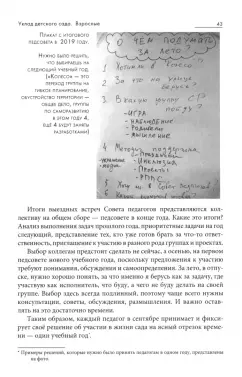 Уклад детского сада. Взрослые
43
Плакат с итогового
педсовета в 2019 году.
Нужно было решить,
что выбираешь на
следующий учебный год.
(«Колесо» — это
гибкое планирование,
обустройство территории —
общее дело, группы
по саморазвитию
в этом году 4,
ещё 4 будут заняты
разработками)
О ЧЕМ ПОДУМАТЬ
ЗА ЛЕТО?
1.
2. За что
3. В какую группу СР
пойду?
- ИГРА
- НАБЛЮДЕНИЕ
- РОДИТЕЛИ
- МЫШЛЕНИЕ
4. Методич. поддержка
Итоги выездных встреч Совета педагогов представляются кол-
лективу на общем сборе — педсовете в конце года. Какие это итоги?
Анализ выполнения задач прошлого года, приоритетные задачи на год
следующий, представление тех, кто уже готов брать за что-то ответ-
ственность, приглашение к участию в разного рода группах и проектах.
Выбор коллегам предстоит сделать не сейчас, а осенью, на первом
педсовете нового учебного года, поскольку предложения к участию
требуют понимания, обсуждения и самоопределения. За лето, в отпу-
ске, нужно хорошо понять, на что есть силы и время, а на что нет, что
я берусь делать в укладе, что я буду, а чего не буду делать на своей
группе. Этот выбор всегда подлинный, поэтому чаще всего нужны
консультации, советы, обсуждения, размышления. И важно оставить
на это достаточно времени.
Таким образом, каждый педагог в сентябре принимает и фикси-
рует своё решение об участии в жизни сада на ясный отрезок време-
ни — один учебный год*.
* Примеры решений, которые нужно было принять педагогам в одном году, представлены
на фото.